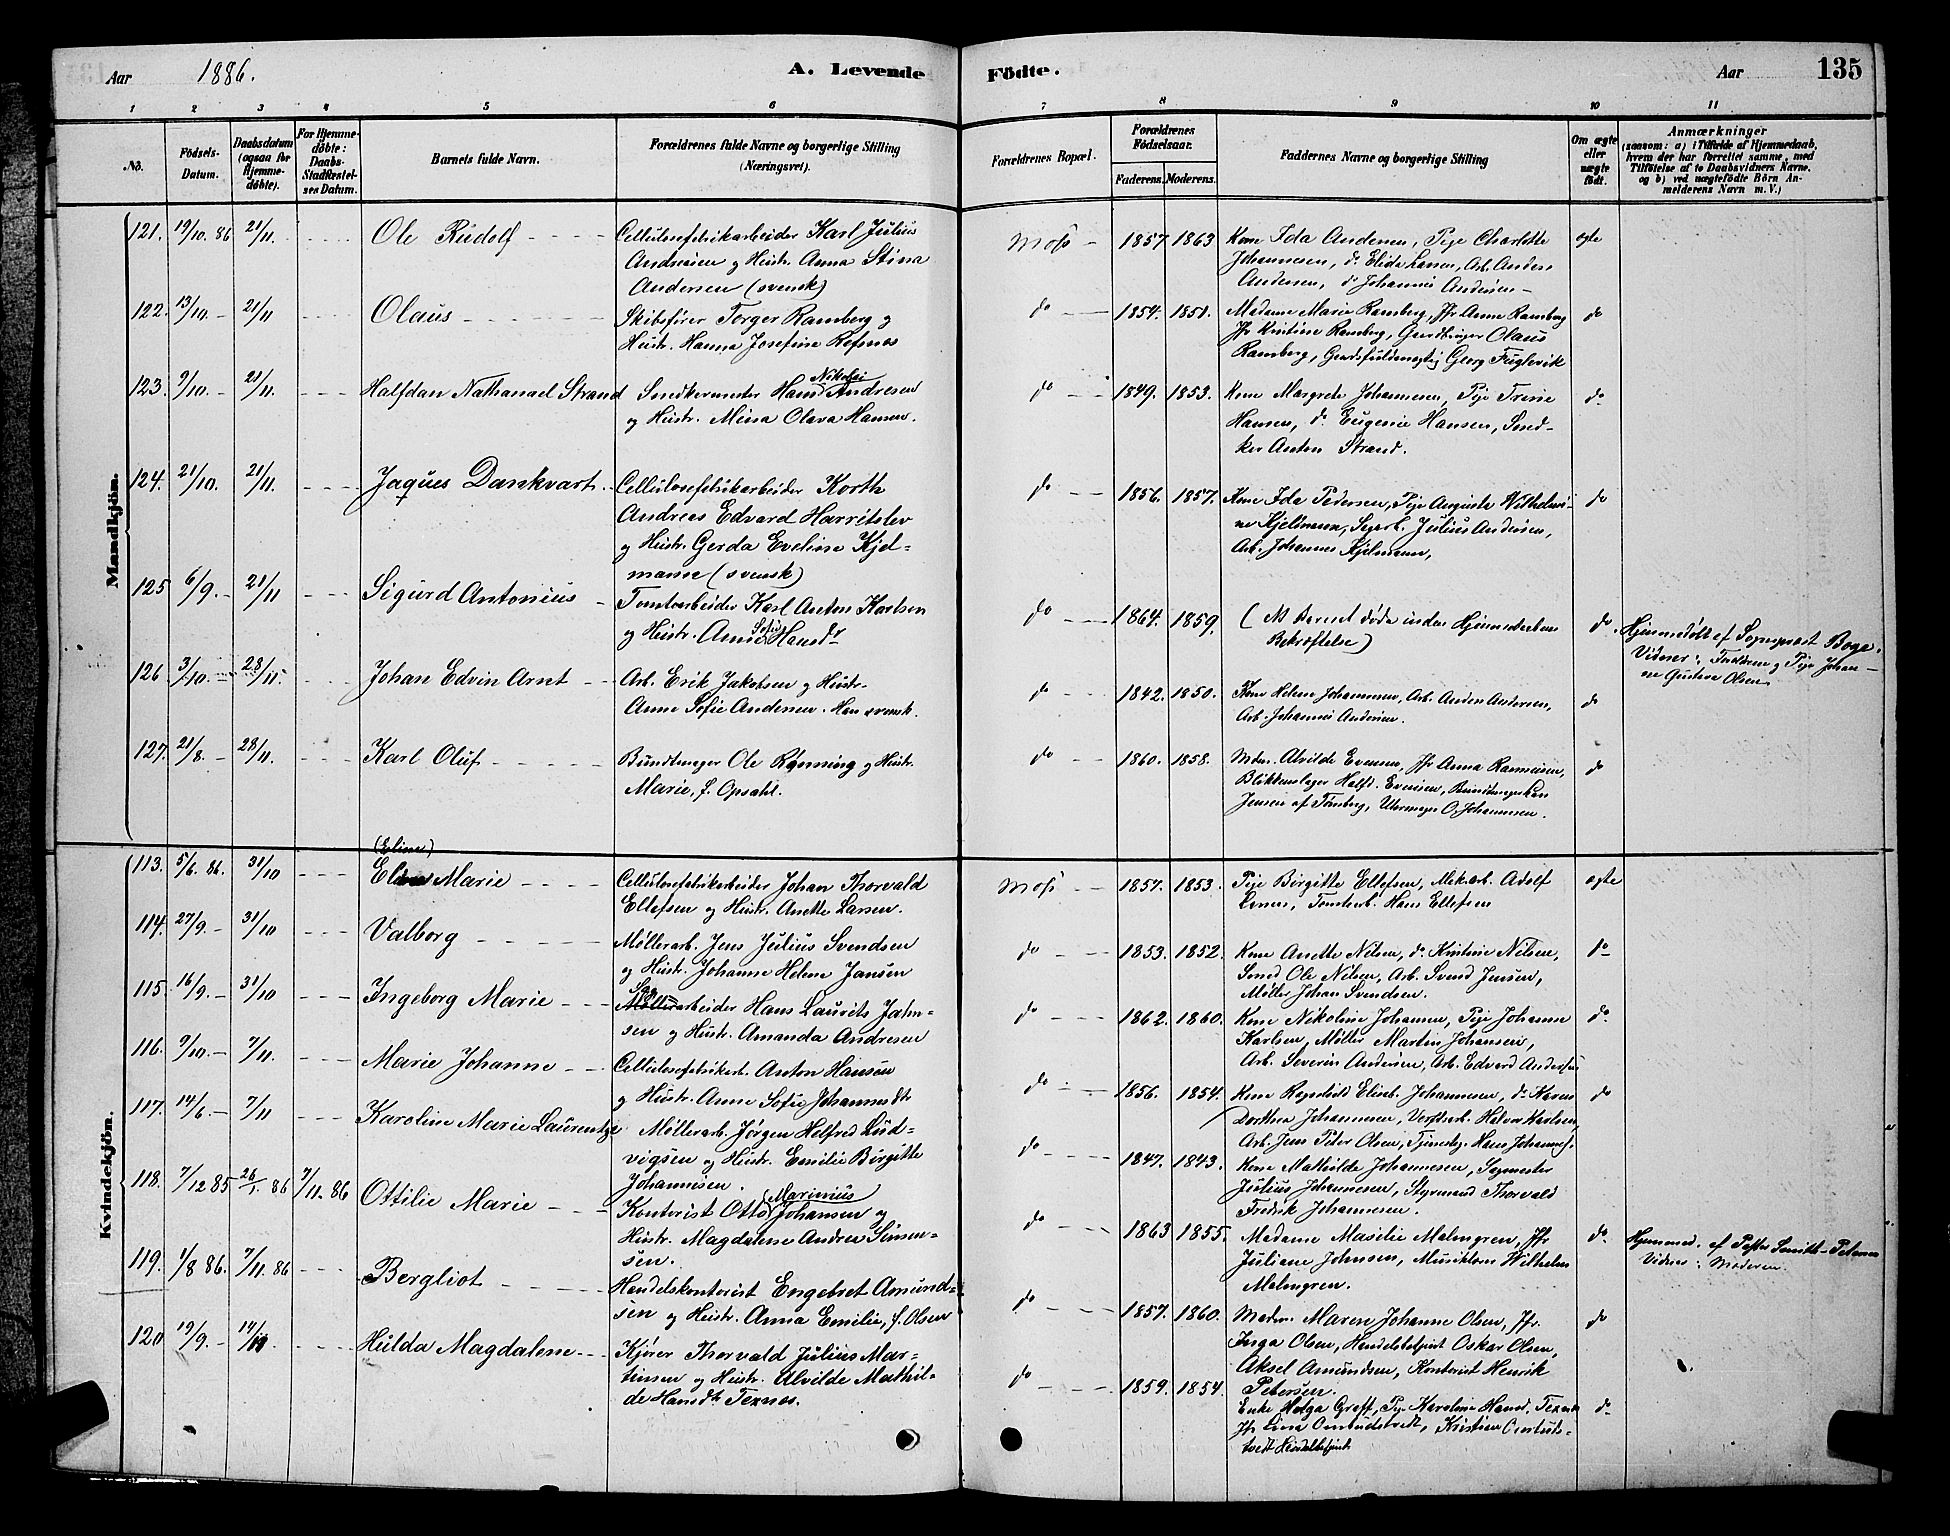 Aar 1886. A. Levende Födte. Aar 135
1 2 3 4 5 6 7 8 9 10 11
No. Födsels-Datum. Daabsdatum (ogsaa for Hjemme-döbte). For Hjemme-döbte: Daabs-Stadfæstel-ses Datum. Barnets fulde Navn. Forældrenes fulde Navne og borgerlige Stilling (Næringsvei). Forældrenes Bopæl. Forældrenes Födselsaar. Faderens. Moderens. Faddernes Navne og borgerlige Stilling Om ægte eller uægte födt. Anmærkninger
(saasom: a) i Tilfælde af Hjemmedaab, hvem der har forrettet samme, med Tilföielse af to Daabsvidners Navne, og b) ved uægtefödte Börn An-melderens Navn m. V.)
Mandkjön.
121. 19/10. 86 21/11. Ole Rudolf Cellulosefabrikarbeider Karl Julius
Andresen og Hustr. Anna Stina
Andersen (svensk)
Moss 1857. 1863 Kone Ida Andersen, Pige Charlotte
Johannesen, do Elida Larsen, Arb. Anders
Andersen, do Johannes Andersen
ægte
122. 13/10. 21/11 Olaus Skibsfører Torger Ramberg og
Hustr. Hanna Josefine Refsnes
do 1854. 1851. Madame Marie Ramberg, Jfr Anne Ramberg
Jfr Kristine Ramberg, Olaus
Ramberg, Gaardsfuldmægtig Georg Fuglevik
do
123. 9/10. 21/11. Halfdan Nathanael Strand Snedkermester Hans Nikolai Andresen
og Hustr. Mina Olava Hansen.
do 1849. 1853. Kone Margrete Johannesen, Pige Trine
Hansen, do Eugenie Hansen, Sned-
ker Anton Strand.
do
124. 21/10. 21/11. Jaques Dankvart Cellulosefabrikarbeider Korth
Andreas Edvard Harritslev
og Hustr. Gerda Eveline Kjel-
mann (svensk)
do 1856. 1857. Kone Ida Pedersen, Pige Augusta Vilhelmi-
ne Kjelmann, Julius Andersen,
Arb. Johannes Kjelmann,
do
125 6/9. 21/11 Sigurd Antonius Tomtearbeider Karl Anton Karlsen
og Hustr. Anne Sofie Hansdr
do 1864. 1859. (NB Barnet døde inden Hjemmedaabens
Bekræftelse)
do. Hjemmedøbt af Sogneprest Boge.
Vidner: Faderen og Pige Johan-
ne Gustava Olsen
126 3/10. 28/11. Johan Edvin Arnt Arb. Erik Jakobsen og Hustr.
Anne Sofie Andersen. Han svensk.
do 1842. 1850. Kone Helene Johannesen, Arb. Anders Andersen,
Arb. Johannes Andersen.
do
127. 21/8. 28/11. Karl Oluf Bundtmager Ole Rønning og Hustr.
Marie, f. Opsahl.
do 1860. 1858. Mdm. Alvilde Evensen, Jfr Anna Rasmusen,
Blikkenslager Halfd. Evensen, Bundtmager Karl
Jensen af Tønsberg, Uhrmager O. Johannesen.
do
Kvindekjön.
113. 5/6. 86. 31/10 (Eline)
Marie Cellulosefabrikarbeider Johan Thorvald
Ellefsen og Hustr. Anette Larsen.
Moss 1857. 1853. Pige Birgitte Ellefsen, Mek.arb. Adolf
Larsen, Tomtearb. Hans Ellefsen
ægte
114. 27/9. 31/10 Valborg Møllerarb. Jens Julius Svendsen
og Hustr. Johanne Helene Jansen
do 1853. 1852. Kone Anette Nilsen, do Kristine Nilsen,
Smed Ole Nilsen, Arb. Svend Jensen,
Møller Johan Svendsen.
do
115. 16/9. 31/10 Ingeborg Marie Sagarbeider Hans Laurits Jahn-
sen og Hustr. Amanda Andresen
do 1862. 1860. Kone Nikoline Johansen, Pige Johanne
Karlsen, Møller Martin Johansen,
Arb. Severin Andersen, Arb. Edvard Andersen
do.
116. 9/10. 7/11. Marie Johanne Cellulosefabrikarb. Anton Hansen
og Hustr. Anne Sofie Johannesdt
do 1856. 1854. Kone Ragnhild Eliseb. Johannesen, do Karen
Dorthea Johannesen, Verftsarb. Halvor Karlsen,
Arb. Jens Peter Olsen, Tjenesteg. Hans Johannes.
do
117. 14/6. 7/11 Karoline Marie Laurentze Møllerarb. Jørgen Helfred Lud-
vigsen og Hustr. Emilie Birgitte
Johannesen.
do 1847. 1843. Kone Mathilde Johannesen, Sagmester
Julius Johannesen, Styrmand Thorvald
Fredrik Johannesen.
118. 7/12 85 26/1. 86 7/11. 86 Ottilie Marie Kontorist Otto Marinius Johansen og
Hustr. Magdalene Andrea Simen-
sen.
do 1863 1855. Madame Masilie Malmgren, Jfr
Juliane Johnsen, Musiklærer Wilhelm
Malmgren.
do. Hjemmed. af Pastor Smith-Petersen
Vidnes: Moderen.
119. 1/8 86. 7/11. 86 Bergliot Handelskontorist Engebret Amund-
sen og Hustr. Anna Emilie, f. Olsen
do 1857. 1860. Madm. Maren Johanne Olsen, Jfr.
Inga Olsen, Handelsbetjent Oskar Olsen,
Aksel Amundsen, Kontorist Henrik
Petersen.
do
120 19/9. 14/11. Hulda Magdalene Kjører Thorvald Julius Mar-
tinsen og Hustr. Alvilde Mathil-
de Hansdtr Texnes.
do 1859. 1854. Enke Helga Graff, Pige Karoline Hansd. Texnes
Jfr Lina Ombudstvedt, Kristian Ombuds-
tvedt Handelsbetjent
do